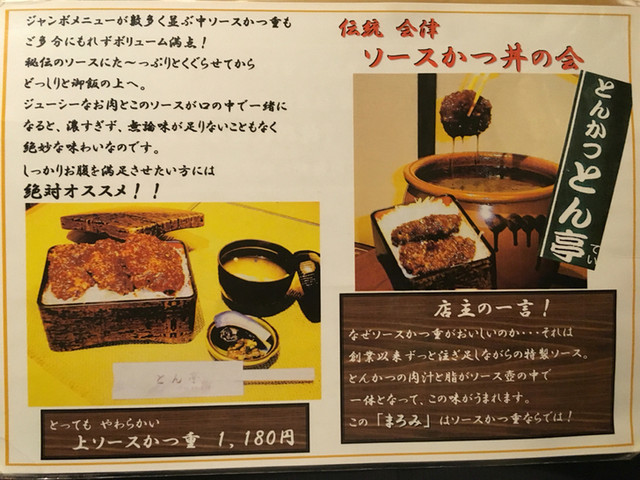 ジャンボメニューが数多く並ぶ中ソースかつ重も
ご多分にもれずボリューム満点！
秘伝のソースにた～っぷりとくぐらせてから
どっしりと御飯の上へ。
ジューシーなお肉とこのソースが口の中で一緒に
なると、濃すぎず、無論味が足りないこともなく
絶妙な味わいなのです。
しっかりお腹を満足させたい方には
絶対オススメ！！
とん亭
とっても やわらかい
上ソースかつ重 1,180円
伝統 会津
ソースかつ丼の会
とんかつとん亭
てい
店主の一言！
なぜソースかつ重がおいしいのか･･･それは
創業以来ずっと注ぎ足しながらの特製ソース。
とんかつの肉汁と脂がソース壺の中で
一体となって、この味がうまれます。
この「まろみ」はソースかつ重ならでは！